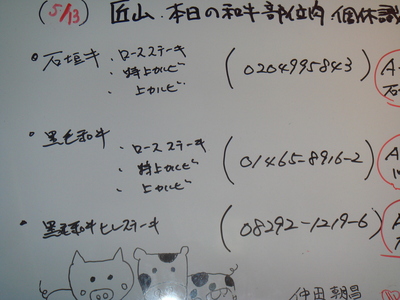 (5/13) 匠山.本日の和牛部位肉.個体識
・石垣牛 ・ロースステーキ (0204995843) A
・特上カルビ
・上カルビ
・黒毛和牛 ・ロースステーキ (01465-8916-2) A
・特上カルビ
・上カルビ
・黒毛和牛ヒレステーキ (08292-1219-6) A
仲田朝昌